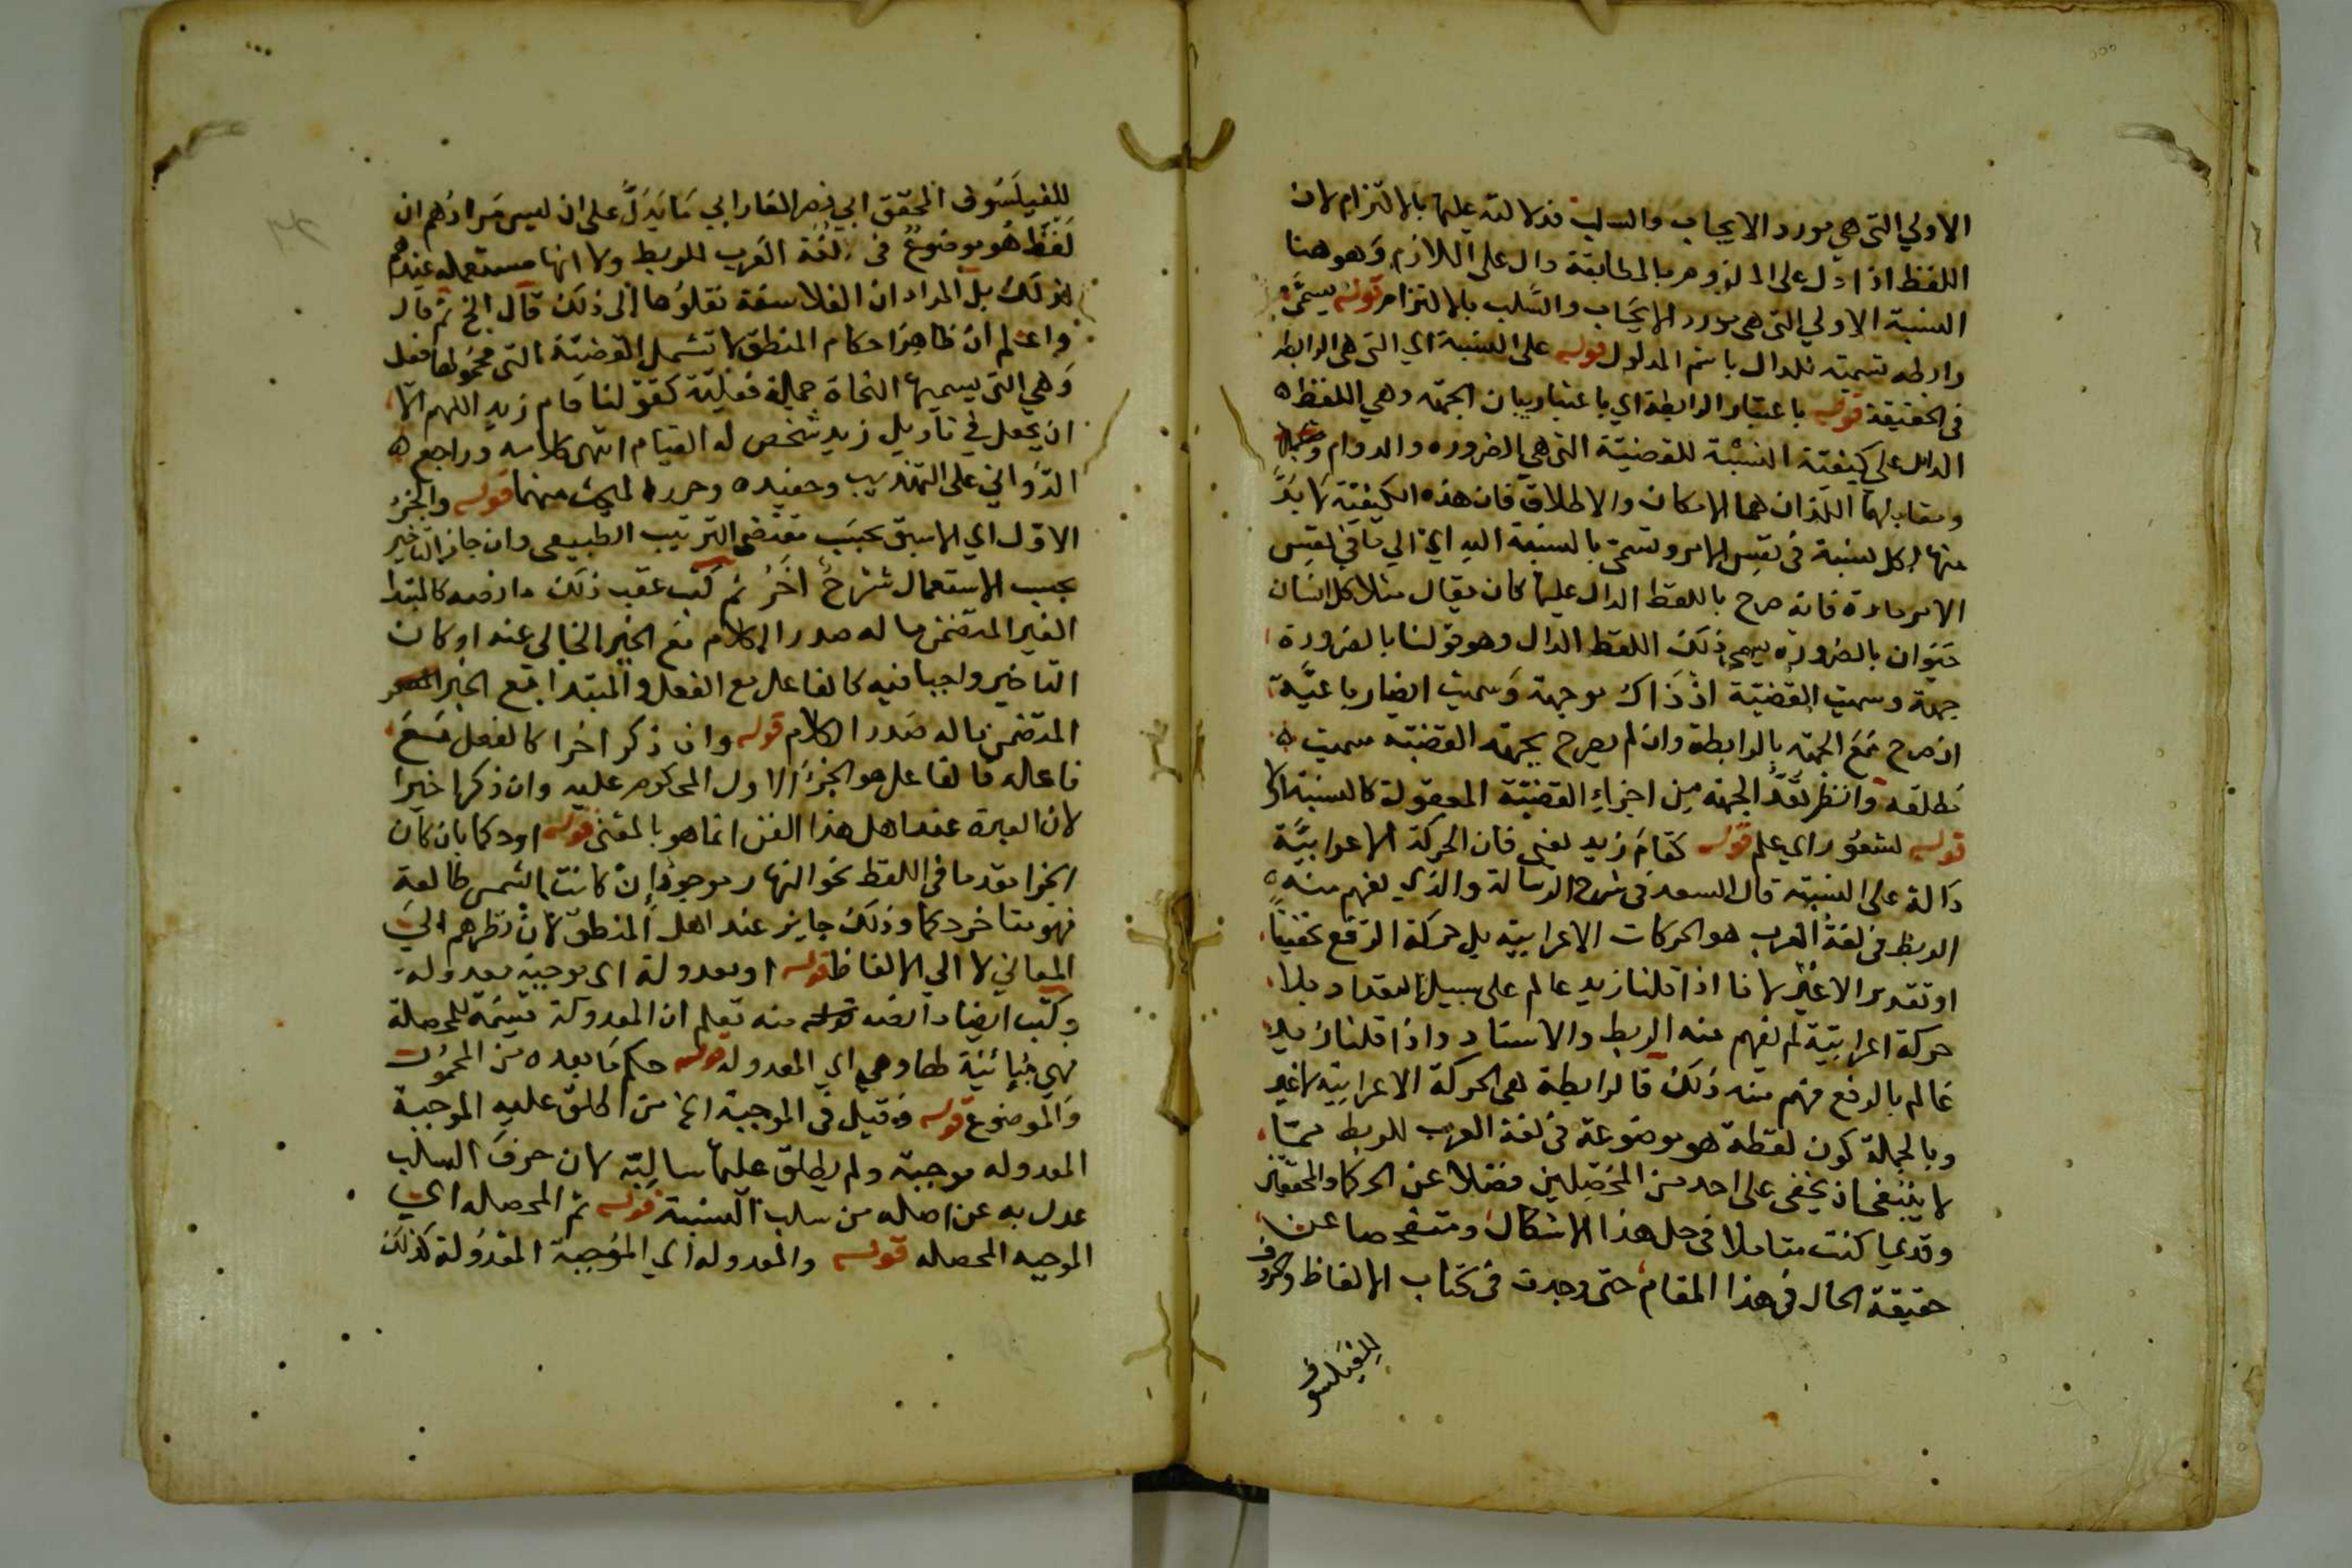 الاولي التي هي مورد الايجاب والسلب فدلالته عليها بالالتزام لان
اللفظ اذا دل على الملزوم بالمطابقة دال على اللازم وهو هنا
النسبة الاولي التي هي مورد الايجاب والسلب بالالتزام قوله يسمى
رابطه تسمية للدال باسم المدلول قوله على النسبة اي التي هي الرابطه
في الحقيقة قوله باعتبار الرابطة اي باعتبار بيان الجهة وهي اللفظ
الدال على كيفية النسبة للقضية التي هي الضروره والدوام
ومقابلهما اللذان هما الامكان والاطلاق فان هذه الكيفية لا بد
منها لكل نسبة في نفس الامر وتسمى بالنسبة اليه اي الي ما في نفس
الامر مادة فانه صرح باللفظ الدال عليها كان يقال مثلا كل انسان
حيوان بالضرورة يسمى ذلك اللفظ الدال وهو قولنا بالضرورة
جهة وسميت القضية اذ ذاك موجهة وسميت ايضا رباعية
ان صرح مع الجهة بالرابطة وان لم يصرح بجهة القضية سميت
مطلقه وانظر تعد الجهة من اجزاء القضية المعقولة كالنسبة
قوله لشعور اي علم قوله كقام زيد يعني فان الحركة الاعرابية
دالة على النسبة قال السعد في شرح الرسالة والذي يفهم منه
الربط في لغة العرب هو الحركات الاعرابية بل حركة الرفع تحقيقا
او تقديرا لا غير لانا اذا قلنا زيد عالم على سبيل التعداد بلا
حركة اعرابية لم يفهم منه الربط والاسناد واذا قلنا زيد
عالم بالرفع فهم منه ذلك فالرابطة هي الحركة الاعرابية لا غير
وبالجملة كون لفظة هو موضوعة في لغة العرب للربط مما
لا ينبغي ان يخفى على احد من المحصلين فضلا عن الحكما والمحققين
وقديما كنت متاملا في حل هذا الاشكال ومتفحصا عن
حقيقة الحال في هذا المقام حتى وجدت في كتاب الالفاظ والحروف
للفيلسوف
للفيلسوف المحقق ابي نصر الفارابي ما يدل على ان ليس مرادهم ان
لفظ هو موضوع في لغة العرب للربط ولا انها مستعمله عندهم
لذلك بل المراد ان الفلاسفة نقلوها الى ذلك قال الخ ثم قال
واعلم ان ظاهر احكام المنطق لا تشمل القضية التي محمولها فعل
وهي التي يسميها النحاة جملة فعلية كقولنا قام زيد اللهم الا
ان يجعل في تاويل زيد شخص له القيام انتهى كلامه وراجع
الدواني على التهذيب وحفيده وحرر المبحث منهما قوله والجزء
الاول اي الاسبق بحسب مقتضى الترتيب الطبيعي وان جاز التاخير
بحسب الاستعمال شرح اخر ثم كتب عقب ذلك ما نصه كالمبتدا
الغير المتضمن ما له صدر الكلام مع الخبر الخالي عنه او كان
التاخير واجبا فيه كالفاعل مع الفعل والمبتدا مع الخبر
المتضمن ما له صدر الكلام قوله وان ذكر اخرا كالفعل مع
فاعله فالفاعل هو الجزء الاول المحكوم عليه وان ذكر اخيرا
لان العبرة عند اهل هذا الفن انما هو بالمعنى قوله او حكما بان كان
الجزا مقدما في اللفظ نحو النهار موجود ان كانت الشمس طالعة
فهو متاخر حكما وذلك جايز عند اهل المنطق لان نظرهم الي
المعاني لا الي الالفاظ قوله او معدولة اي موجبة معدولة
وكتب ايضا ما نصه قوله منه تعلم ان المعدولة قسيمة للمحصلة
فهي مباينة لها وهي اي المعدوله قوله حكم ما بعده من المحمول
والموضوع قوله وقيل في الموجبة الخ من اطلق عليه الموجبة
المعدوله موجبة ولم يطلق عليها سالبة لان حرف السلب
عدل به عن اصله من سلب النسبة قوله ثم المحصله اي
الموجبه المحصله قوله والمعدوله اي الموجبة المعدولة كذلك